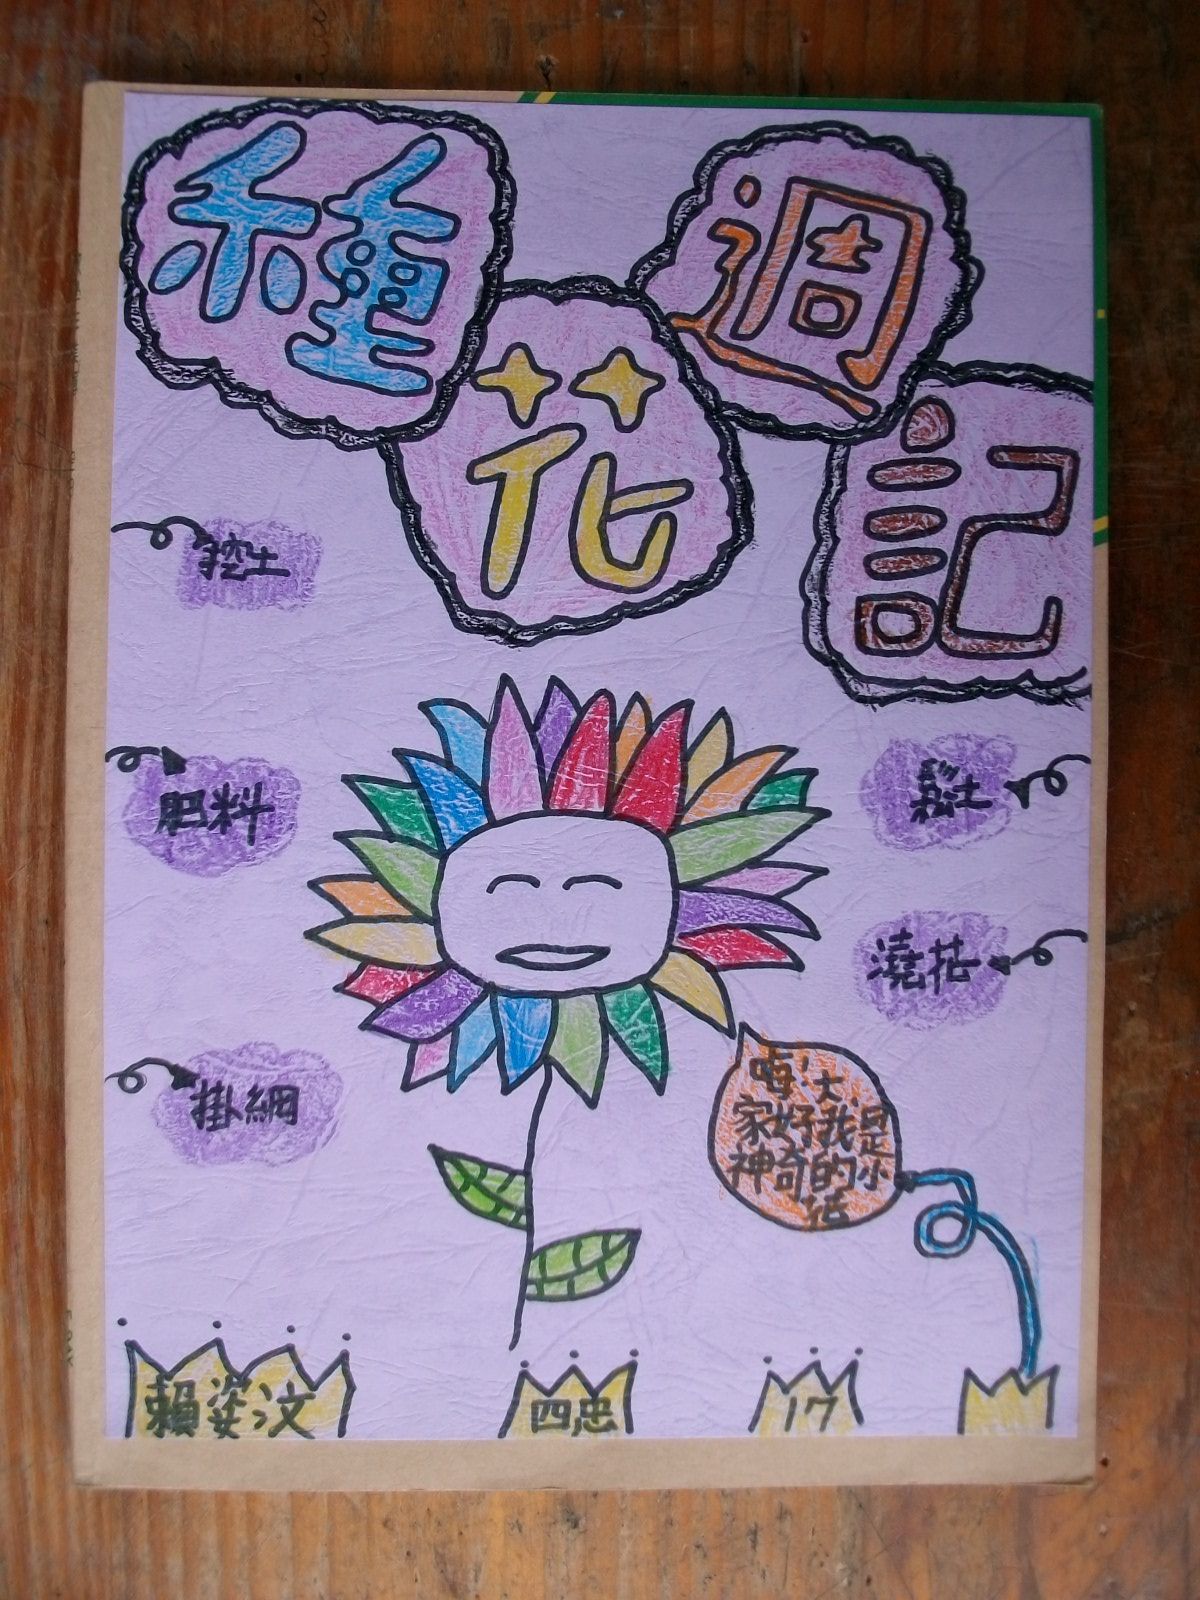 種花週記
挖土
肥料
掛網
鬆土
澆花
嗨!大
家好我是
神奇的小
花
賴姿汶
四忠
17